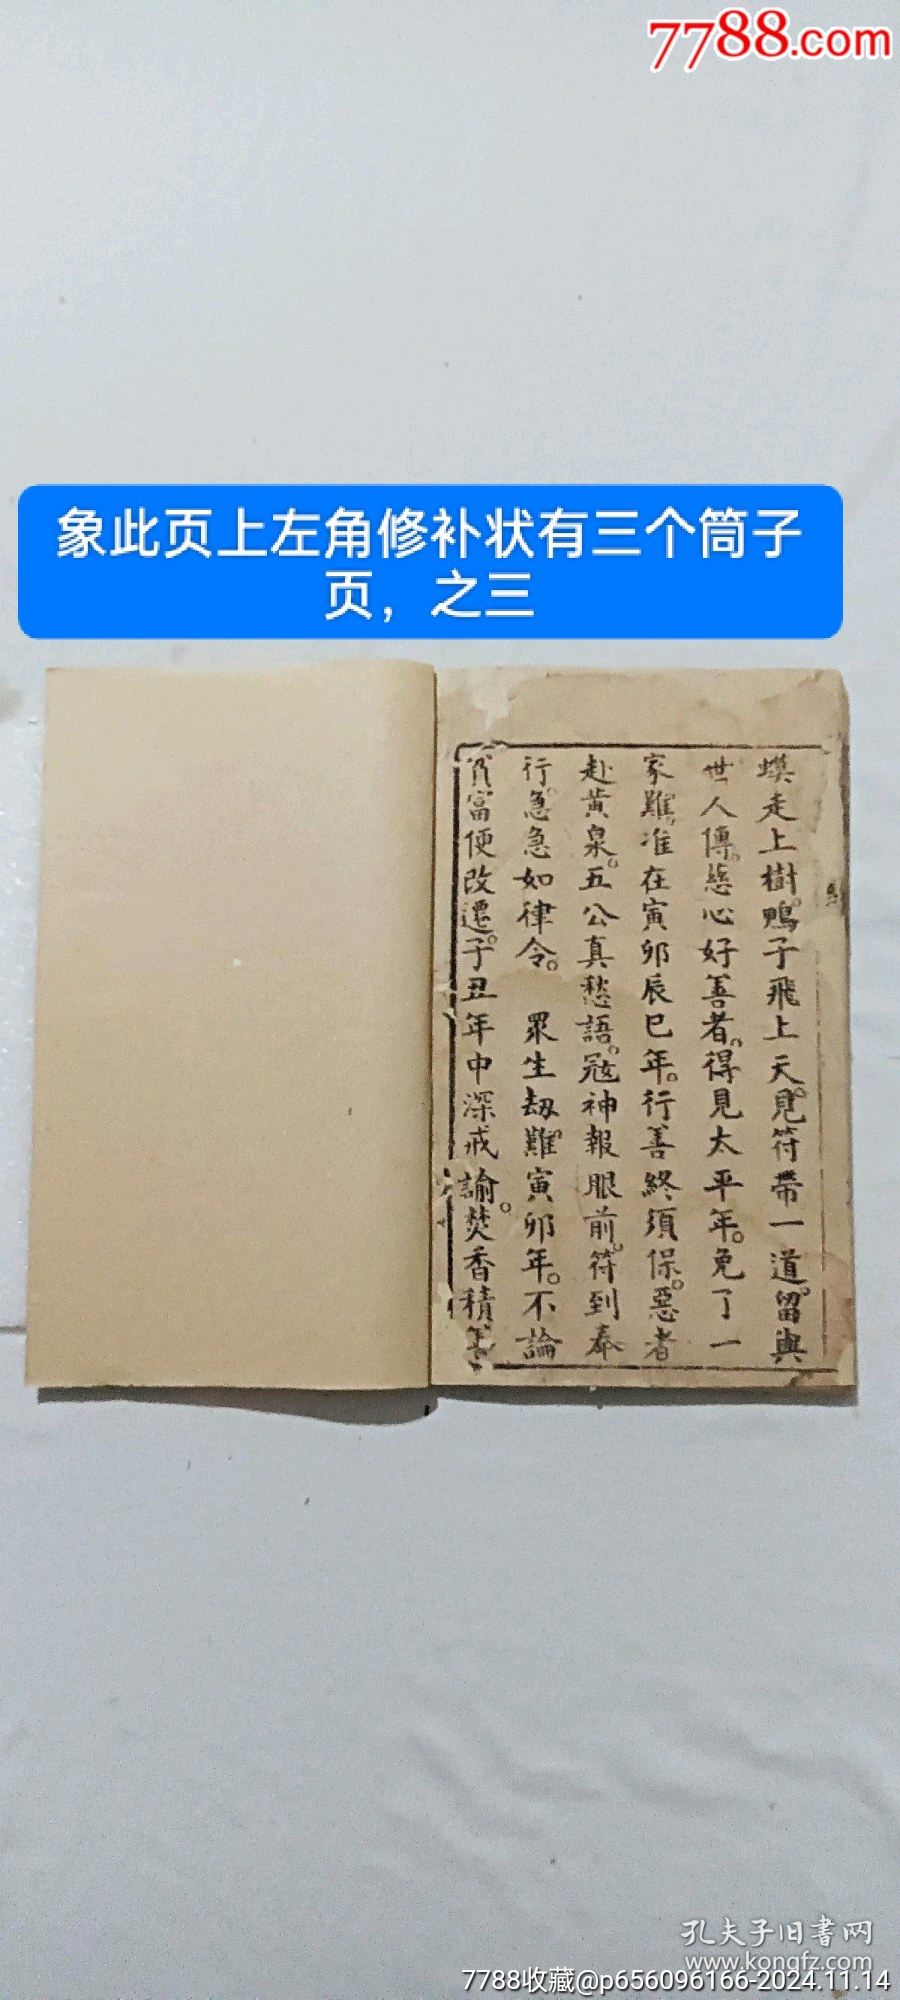 7788.com
象此页上左角修补状有三个筒子
页，之三
蟆走上樹。鴨子飛上天。見符帶一道。留與
世人傳。慈心好善者。得見太平年。免了一
家難。准在寅卯辰巳年。行善終須保。惡者
赴黃泉。五公真愁語。寇神報眼前。符到奉
行。急急如律令。　眾生劫難寅卯年。不論
貧富便改遷。子丑年中深戒諭。焚香積善
孔夫子旧书网
www.kongfz.com
7788收藏@p656096166-2024.11.14